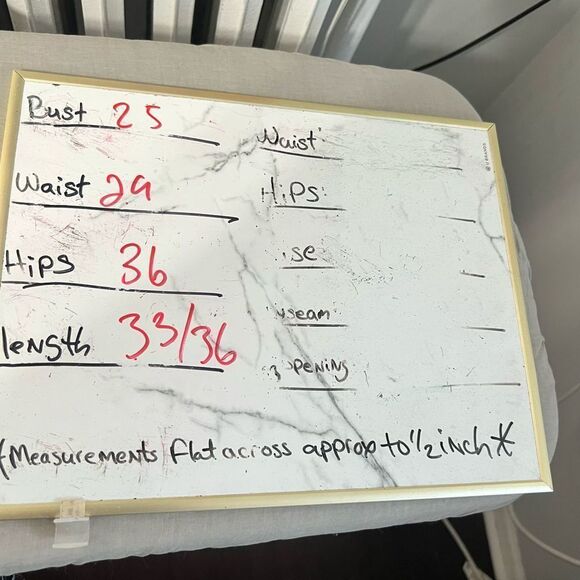 Bust 25
Waist 29
Hips 36
length 33/36
Waist
Hips
se
nseam
opening
*Measurements flat across approx to 1/2 inch*
U BRANDS